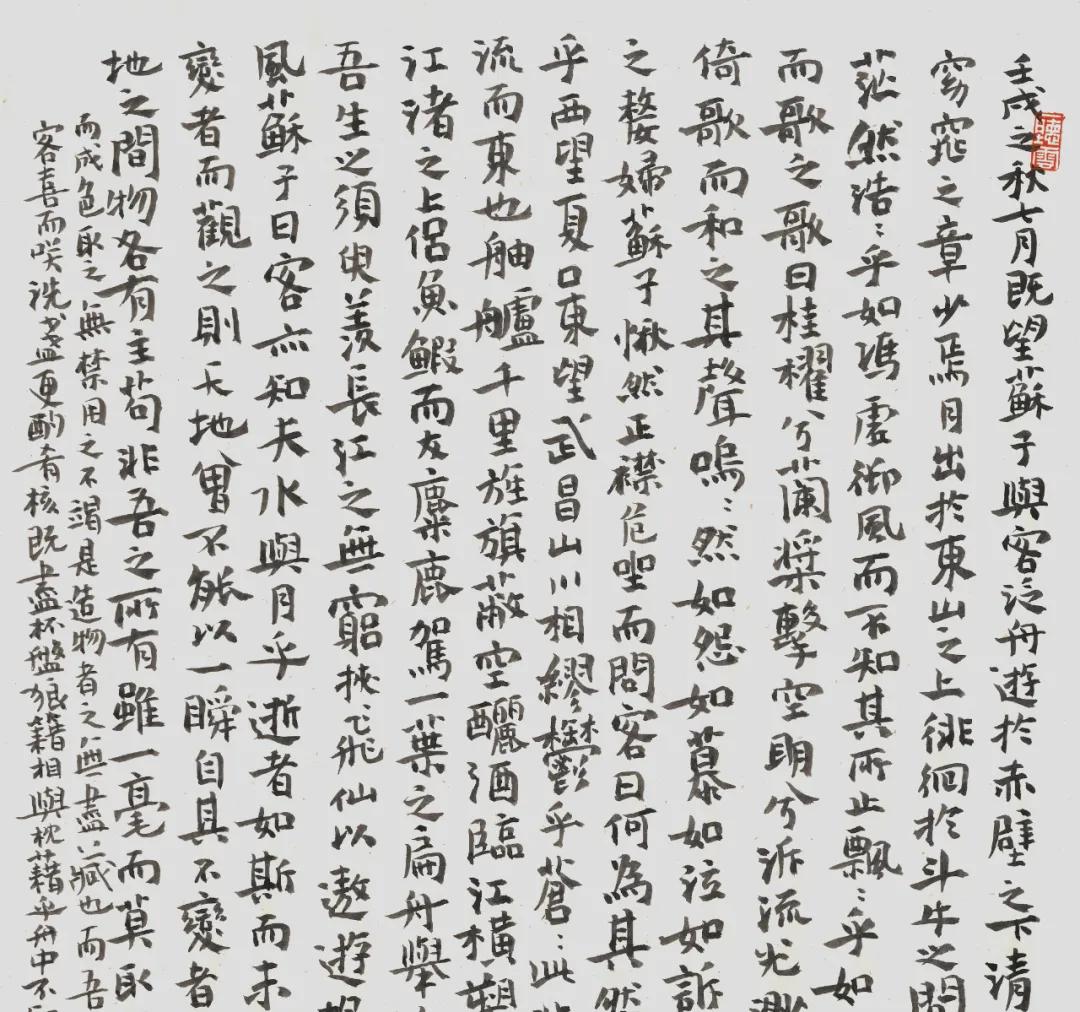 壬戌之秋七月既望蘇子與客泛舟遊於赤壁之下清
窈窕之章少焉月出於東山之上徘徊於斗牛之間
茫然浩〻乎如馮虛御風而不知其所止飄〻乎如
而歌之歌曰桂櫂兮蘭槳擊空明兮泝流光渺
倚歌而和之其聲嗚〻然如怨如慕如泣如訴
之嫠婦蘇子愀然正襟危坐而問客曰何為其然
乎西望夏口東望武昌山川相繆鬱乎蒼〻此
流而東也舳艫千里旌旗蔽空釃酒臨江橫槊
江渚之上侶魚鰕而友麋鹿駕一葉之扁舟舉
吾生之須臾羨長江之無窮挾飛仙以遨遊
風蘇子曰客亦知夫水與月乎逝者如斯而未
變者而觀之則天地曾不能以一瞬自其不變者
地之間物各有主苟非吾之所有雖一毫而莫取
而成色取之無禁用之不竭是造物者之無盡藏也而吾
客喜而咲洗盞更酌肴核既盡杯盤狼籍相與枕藉乎舟中不